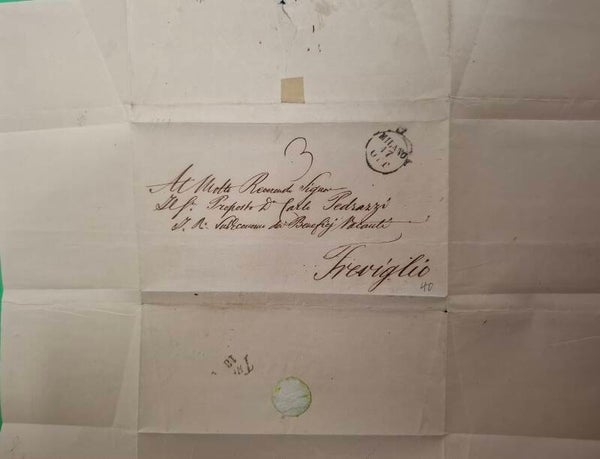 3
MILANO
17
OTT
Al Molto Reverendo Signor
Il Sr. Proposto Dn. Carlo Pedrazzi
I. R. Subeconomo dei Benefizj Vacanti
Treviglio
40
18